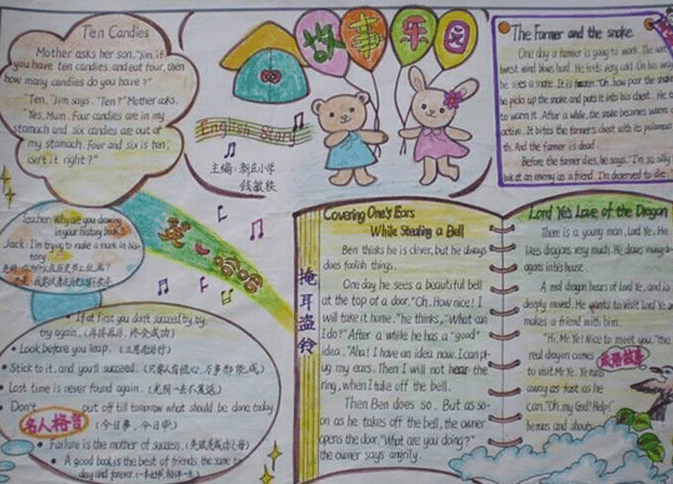 Ten Candies
Mother asks her son, "Jim, if
you have ten candies, and eat four, then
how many candies do you have?"
"Ten," Jim says. "Ten?" Mother asks.
"Yes, Mum. Four candies are in my
stomach and six candies are out of
my stomach. Four and six is ten,
isn't it right?"
故事乐园
English Story
主编：新庄小学
钱敏轶
The Farmer and the snake
One day a farmer is going to work. The
west wind blows hard. He feels very cold. On his way
he sees a snake. It is frozen. "Oh, how poor the snake
he picks up the snake and puts it into his chest. He t
to warm it. After a while, the snake becomes warm
active. It bites the farmer's chest with its poisonous
th. And the farmer is dead.
Before the farmer dies, he says, "I'm so silly
look at an enemy as a friend. I'm deserved to die."
Teacher: Why are you drawing
in your history book?
Jack: I'm trying to make a mark in his-
tory.
英 哈哈
If at first you don't succeed, try, try,
try again. (再接再厉，终会成功)
Look before you leap. (三思而后行)
Stick to it, and you'll succeed. (只要人有恒心，万事都能成)
Lost time is never found again. (光阴一去不复返)
Don't put off till tomorrow what should be done today.
名人格言 (今日事，今日毕)
Failure is the mother of success. (失败是成功之母)
A good book is the best of friends, the same to-
day and forever.
掩耳盗铃
Covering One's Ears
While Stealing a Bell
Ben thinks he is clever, but he always
does foolish things.
One day he sees a beautiful bell
at the top of a door. "Oh, How nice! I
will take it home," he thinks, "What can
I do?" After a while he has a "good"
idea. "Aha! I have an idea now. I can pl-
ug my ears. Then I will not hear the
ring, when I take off the bell.
Then Ben does so. But as so-
on as he takes off the bell, the owner
opens the door. "What are you doing?"
the owner says angrily.
Lord Ye's Love of the Dragon
There is a young man, Lord Ye. He
likes dragons very much. He draws many dr-
agons in his house.
A real dragon hears of Lord Ye, and is
deeply moved. He wants to visit Lord Ye an
makes a friend with him.
"Hi, Mr Ye! Nice to meet you," the
real dragon comes
to visit Mr Ye. Ye runs
away as fast as he
can. "Oh, my God! Help!"
he runs and shouts.
成语故事